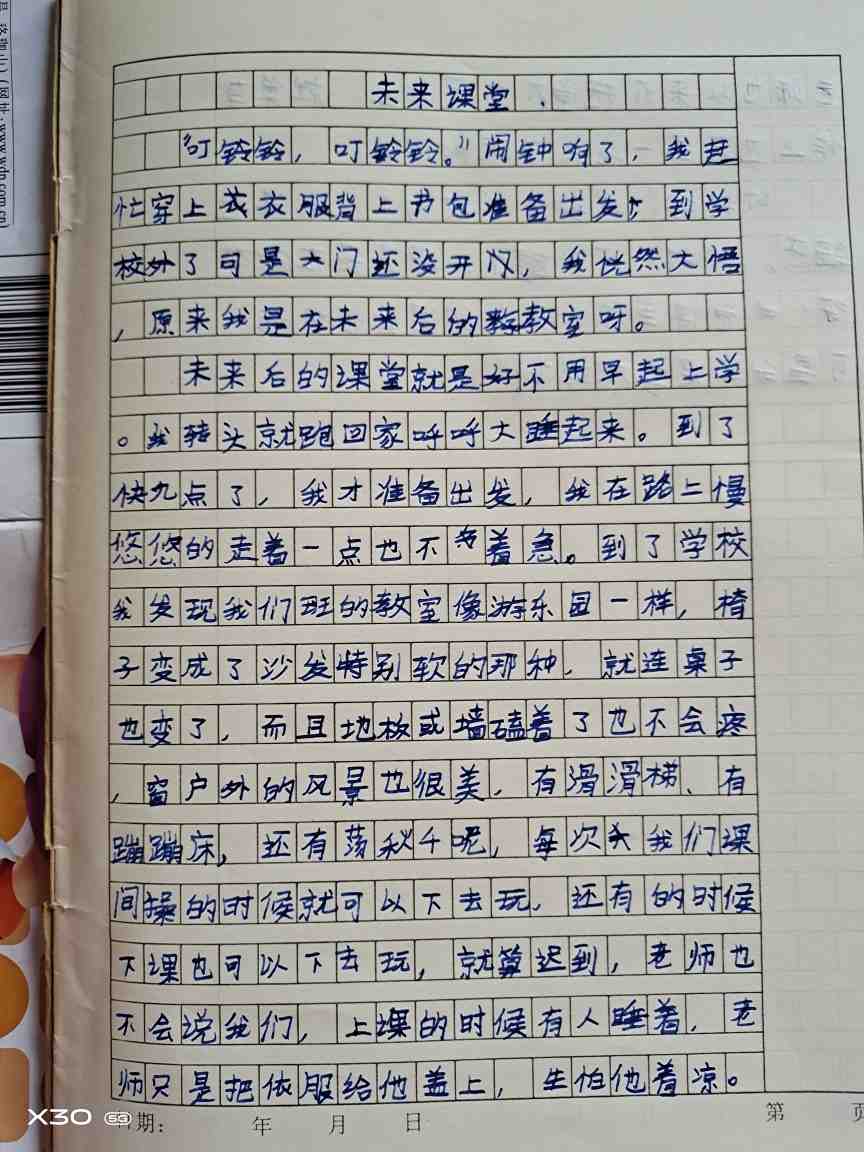 未来课堂
“叮铃铃，叮铃铃。”闹钟响了，我赶
忙穿上衣服背上书包准备出发，到学
校外了可是大门还没开仅，我恍然大悟
，原来我是在未来后的教室呀。
未来后的课堂就是好不用早起上学
。我转头就跑回家呼呼大睡起来。到了
快九点了，我才准备出发，我在路上慢
悠悠的走着一点也不着急。到了学校
我发现我们班的教室像游乐园一样，椅
子变成了沙发特别软的那种，就连桌子
也变了，而且地板或墙磕着了也不会疼
，窗户外的风景也很美，有滑滑梯、有
蹦蹦床，还有荡秋千呢，每次我们课
间操的时候就可以下去玩，还有的时候
下课也可以下去玩，就算迟到，老师也
不会说我们，上课的时候有人睡着，老
师只是把依服给他盖上，生怕他着凉。
日期： 年 月 日
第 页
X30 53
(网址:www.wdp.com.cn)